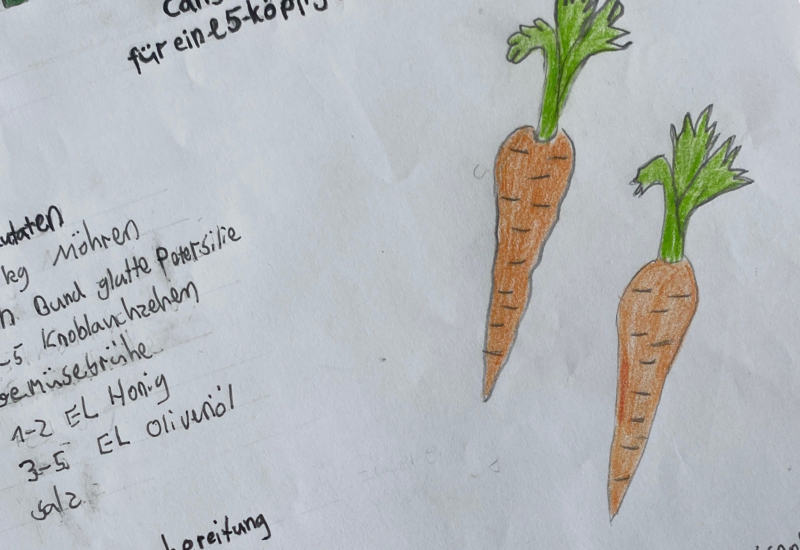 für eine 5-köpfig
Zutaten
kg Möhren
n Bund glatte Petersilie
-5 Knoblauchzehen
Gemüsebrühe
1-2 EL Honig
3-5 EL Olivenöl
Salz
bereitung